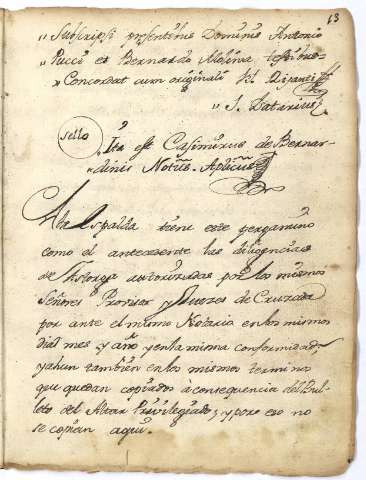 13
" Subscripsi præsentibus Dominis Antonio
" Pucci et Bernardo Molina, testibus
" Concordat cum originali
" S. Datarius
sello
" Ita est Casimirus de Bernar-
" dinis Notrs. Aplicus
A la Espalda tiene este pergamino
como el antecedente las diligencias
de Astorga autorizadas por los mismos
Señores Provisor y Juezes de Cruzada
por ante el mismo Notario en los mismos
dias mes, y año y en la misma conformidad,
y aun tambien en los mismos terminos
que quedan copiados à consequencia del Bul-
leto del Altar Privilegiado, y por eso no
se copian aqui.